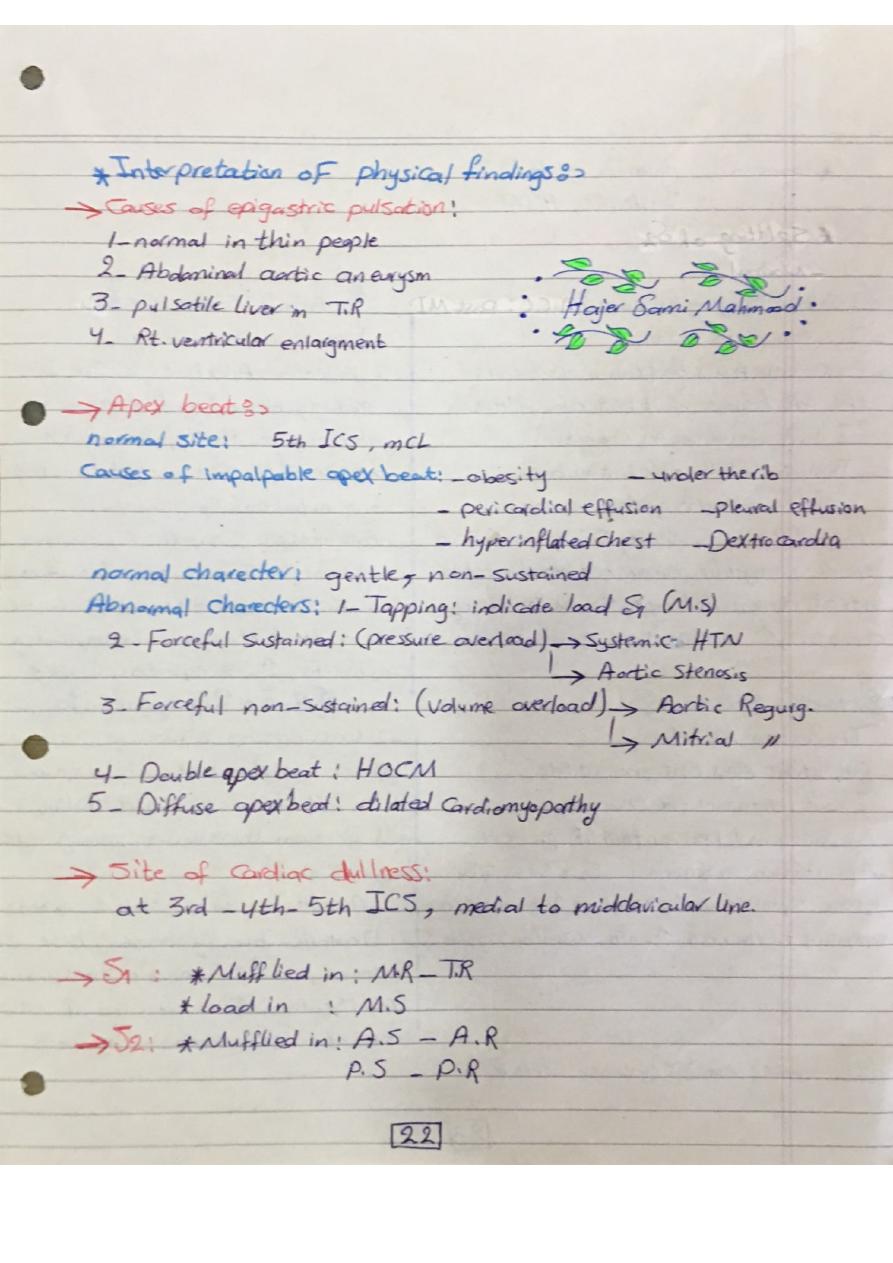 * Interpretation of physical findings:>
→ Causes of epigastric pulsation:
1- normal in thin people
2- Abdominal aortic aneurysm
3- pulsatile liver in T.R
Hajer Sami Mahmood
4- Rt. ventricular enlargment
→ Apex beat:>
normal site: 5th ICS, mCL
Causes of impalpable apex beat: - obesity - under the rib
- pericardial effusion - pleural effusion
- hyperinflated chest - Dextrocardia
normal charecter: gentle, non-sustained
Abnormal charecters: 1- Tapping: indicate load S1 (M.S)
2- Forceful Sustained: (pressure overload) → Systemic HTN
↳ Aortic Stenosis
3- Forceful non-sustained: (volume overload) → Aortic Regurg.
↳ Mitrial "
4- Double apex beat: HOCM
5- Diffuse apex beat: dilated Cardiomyopathy
→ Site of cardiac dullness:
at 3rd - 4th - 5th ICS, medial to middavicular line.
→ S1: * Mufflied in: M.R - T.R
* load in : M.S
→ S2: * Mufflied in: A.S - A.R
P.S - P.R
22